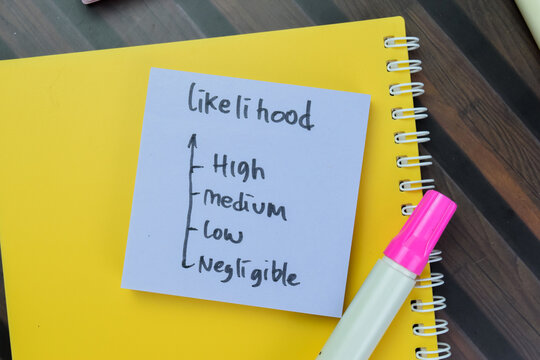 Likelihood
High
medium
Low
Negligible